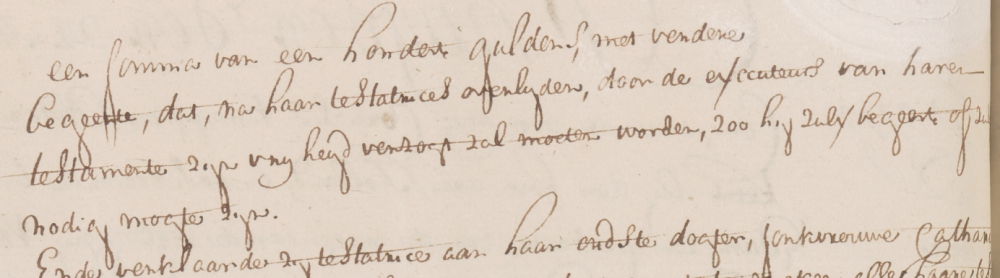 een somma van een hondert guldens, met verdere
begeerte, dat, na haar testatrices overlyden, door de executeurs van haren
testamente zyn vryheyd verzogt zal moeten worden, zoo hy zulx begeert of zul
nodig mogte zyn.
Ende verklaarde zy testatrice aan haar oudste dogter, Jonkvrouwe Cathar